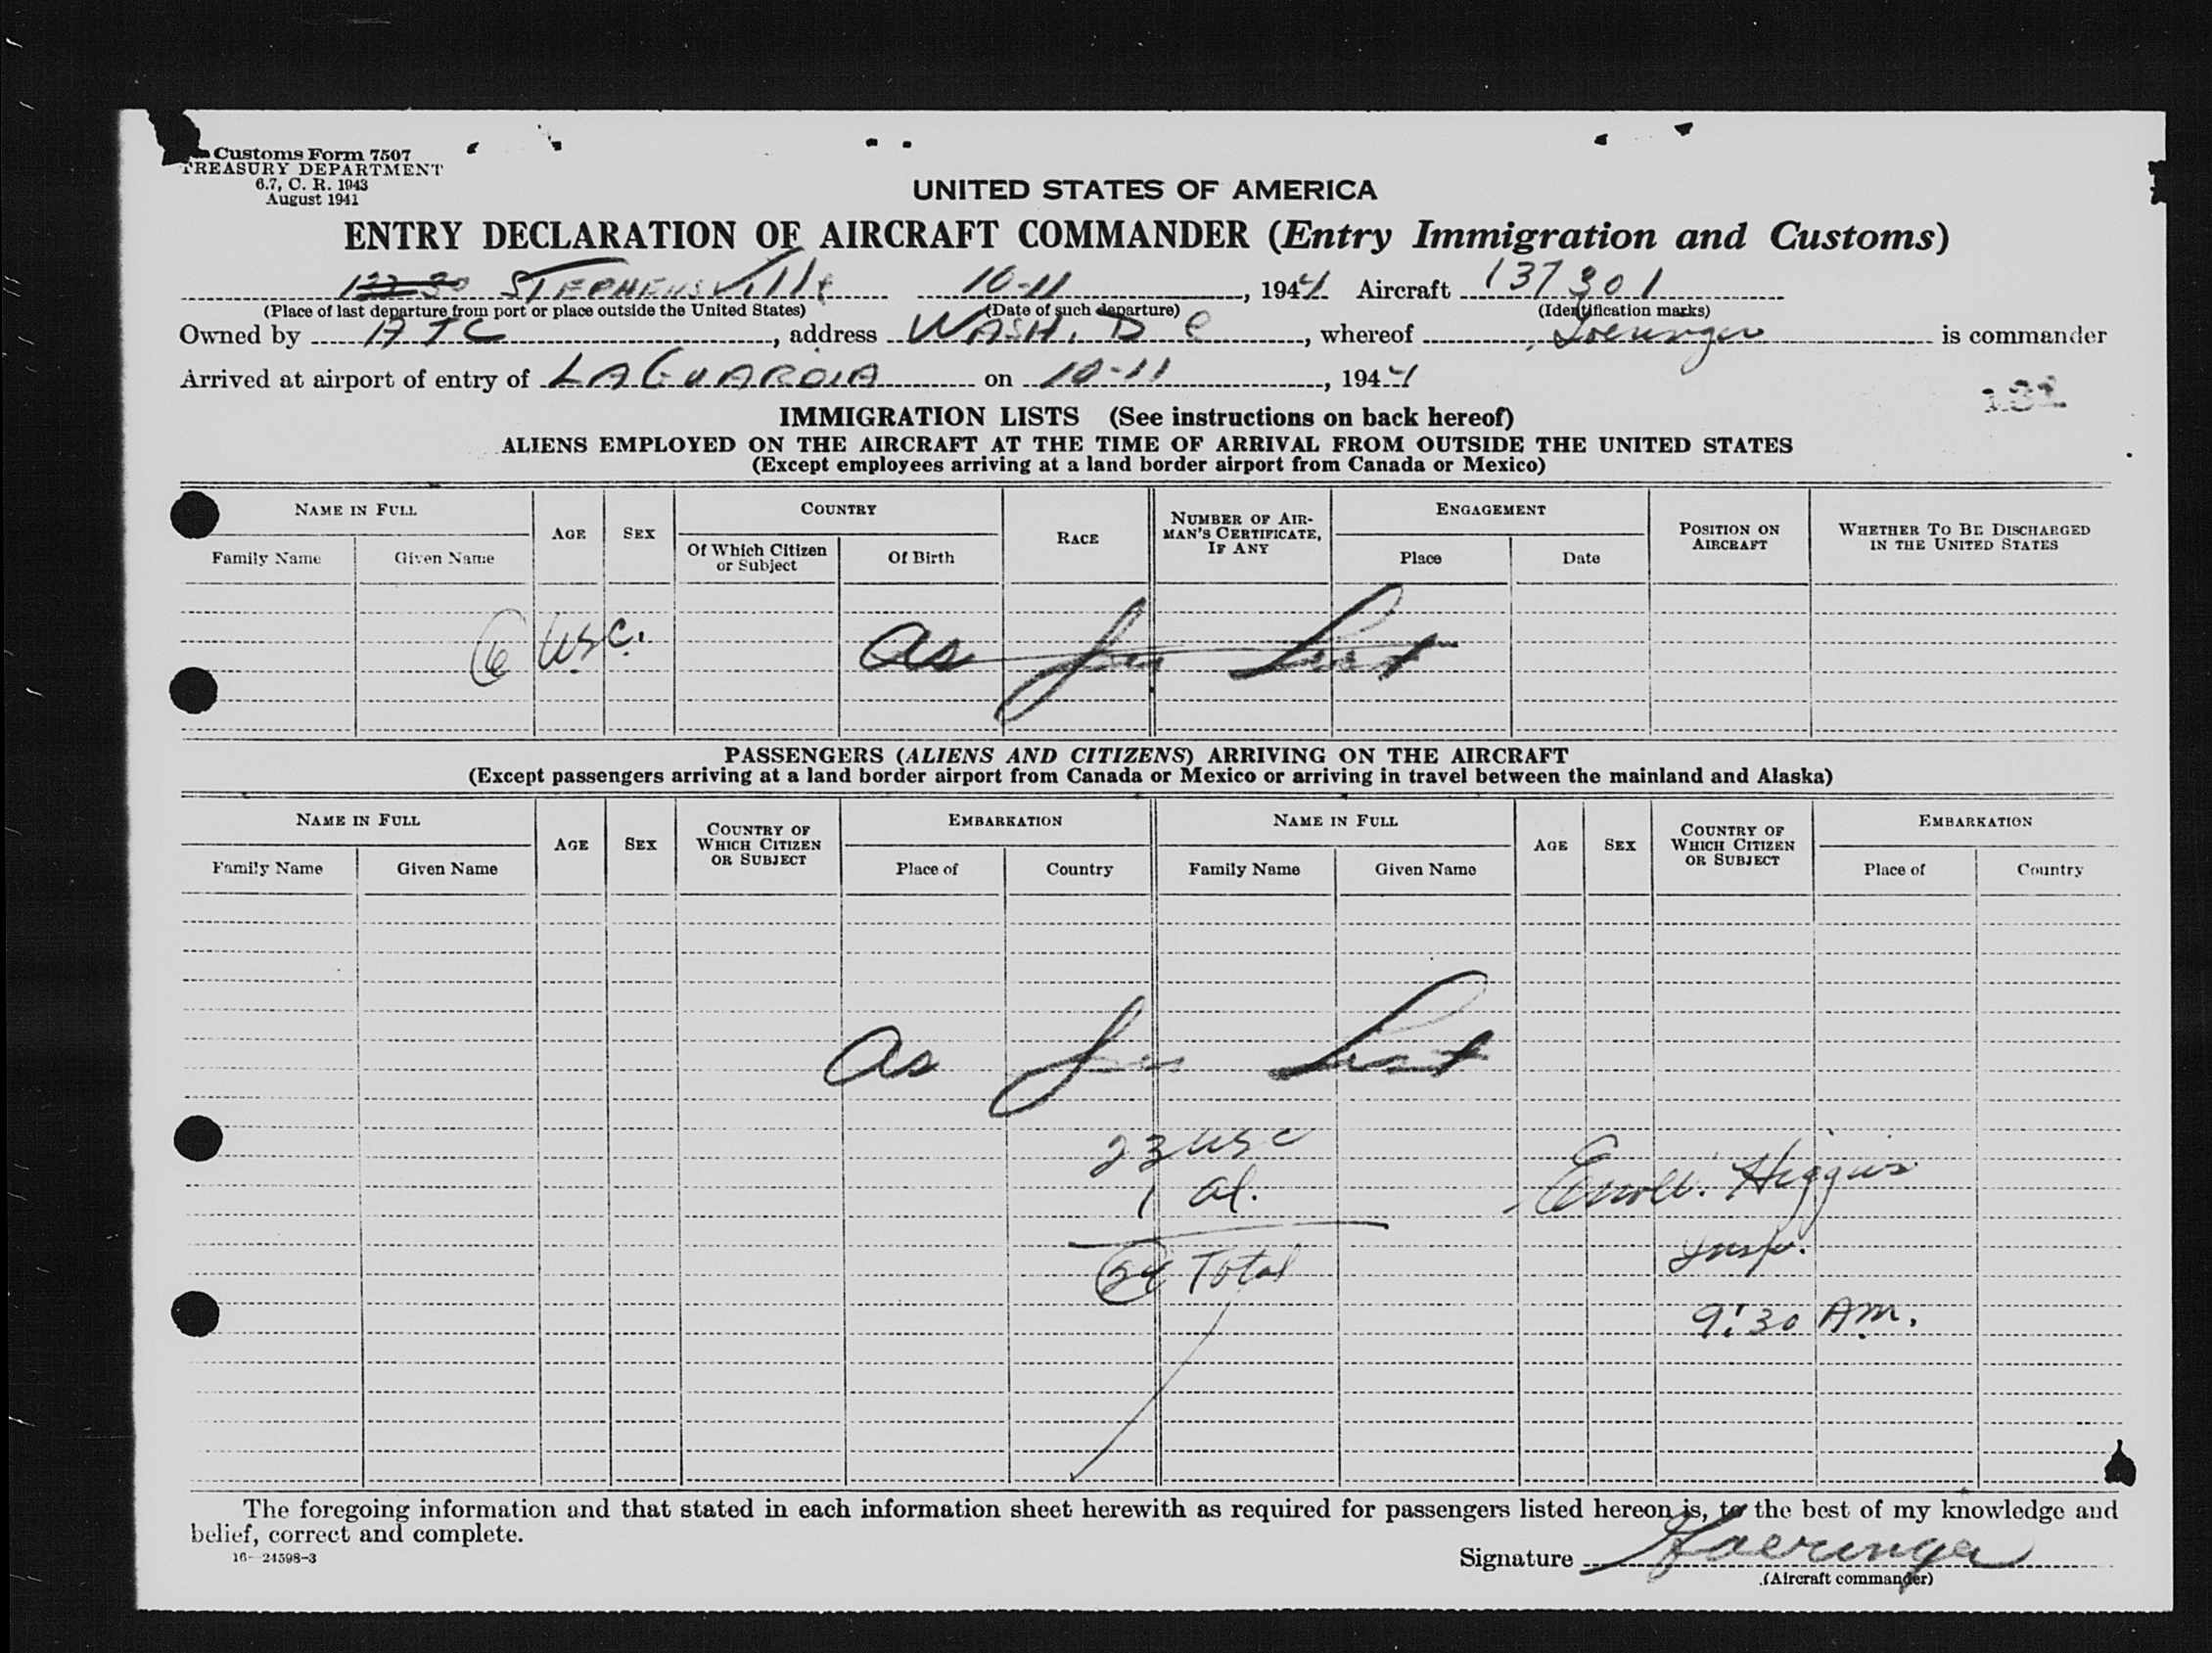 Customs Form 7507
TREASURY DEPARTMENT
6.7, C. R. 1943
August 1941
UNITED STATES OF AMERICA
ENTRY DECLARATION OF AIRCRAFT COMMANDER (Entry Immigration and Customs)
STEPHENSVIlle 10-11, 1944 Aircraft 137301
(Place of last departure from port or place outside the United States) (Date of such departure) (Identification marks)
Owned by ATC, address WASH. D C, whereof is commander
Arrived at airport of entry of LAGUARDIA on 10-11, 1944
IMMIGRATION LISTS (See instructions on back hereof)
ALIENS EMPLOYED ON THE AIRCRAFT AT THE TIME OF ARRIVAL FROM OUTSIDE THE UNITED STATES
(Except employees arriving at a land border airport from Canada or Mexico)
NAME IN FULL AGE SEX COUNTRY RACE NUMBER OF AIRMAN'S CERTIFICATE, IF ANY ENGAGEMENT POSITION ON AIRCRAFT WHETHER TO BE DISCHARGED IN THE UNITED STATES
Family Name Given Name Of Which Citizen or Subject Of Birth Place Date
6 USC. As per List
PASSENGERS (ALIENS AND CITIZENS) ARRIVING ON THE AIRCRAFT
(Except passengers arriving at a land border airport from Canada or Mexico or arriving in travel between the mainland and Alaska)
NAME IN FULL AGE SEX COUNTRY OF WHICH CITIZEN OR SUBJECT EMBARKATION NAME IN FULL AGE SEX COUNTRY OF WHICH CITIZEN OR SUBJECT EMBARKATION
Family Name Given Name Place of Country Family Name Given Name Place of Country
As per List
23 USC
1 al. Higgins
24 Total Insp.
9:30 AM.
The foregoing information and that stated in each information sheet herewith as required for passengers listed hereon is, to the best of my knowledge and
belief, correct and complete.
16—24598-3
Signature
(Aircraft commander)